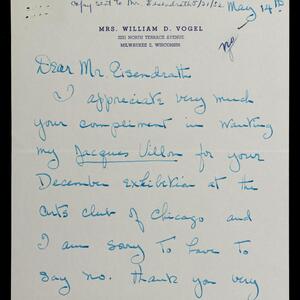 Copy sent to Mr. Eisendrath 5/21/52
May 14th
MRS. WILLIAM D. VOGEL
NORTH TERRACE AVENUE
MILWAUKEE 2, WISCONSIN
Dear Mr. Eisendrath
I appreciate very much
your compliment in wanting
my Jacques Villon for your
December exhibition at the
Arts Club of Chicago and
I am sorry to have to
say no. Thank you very